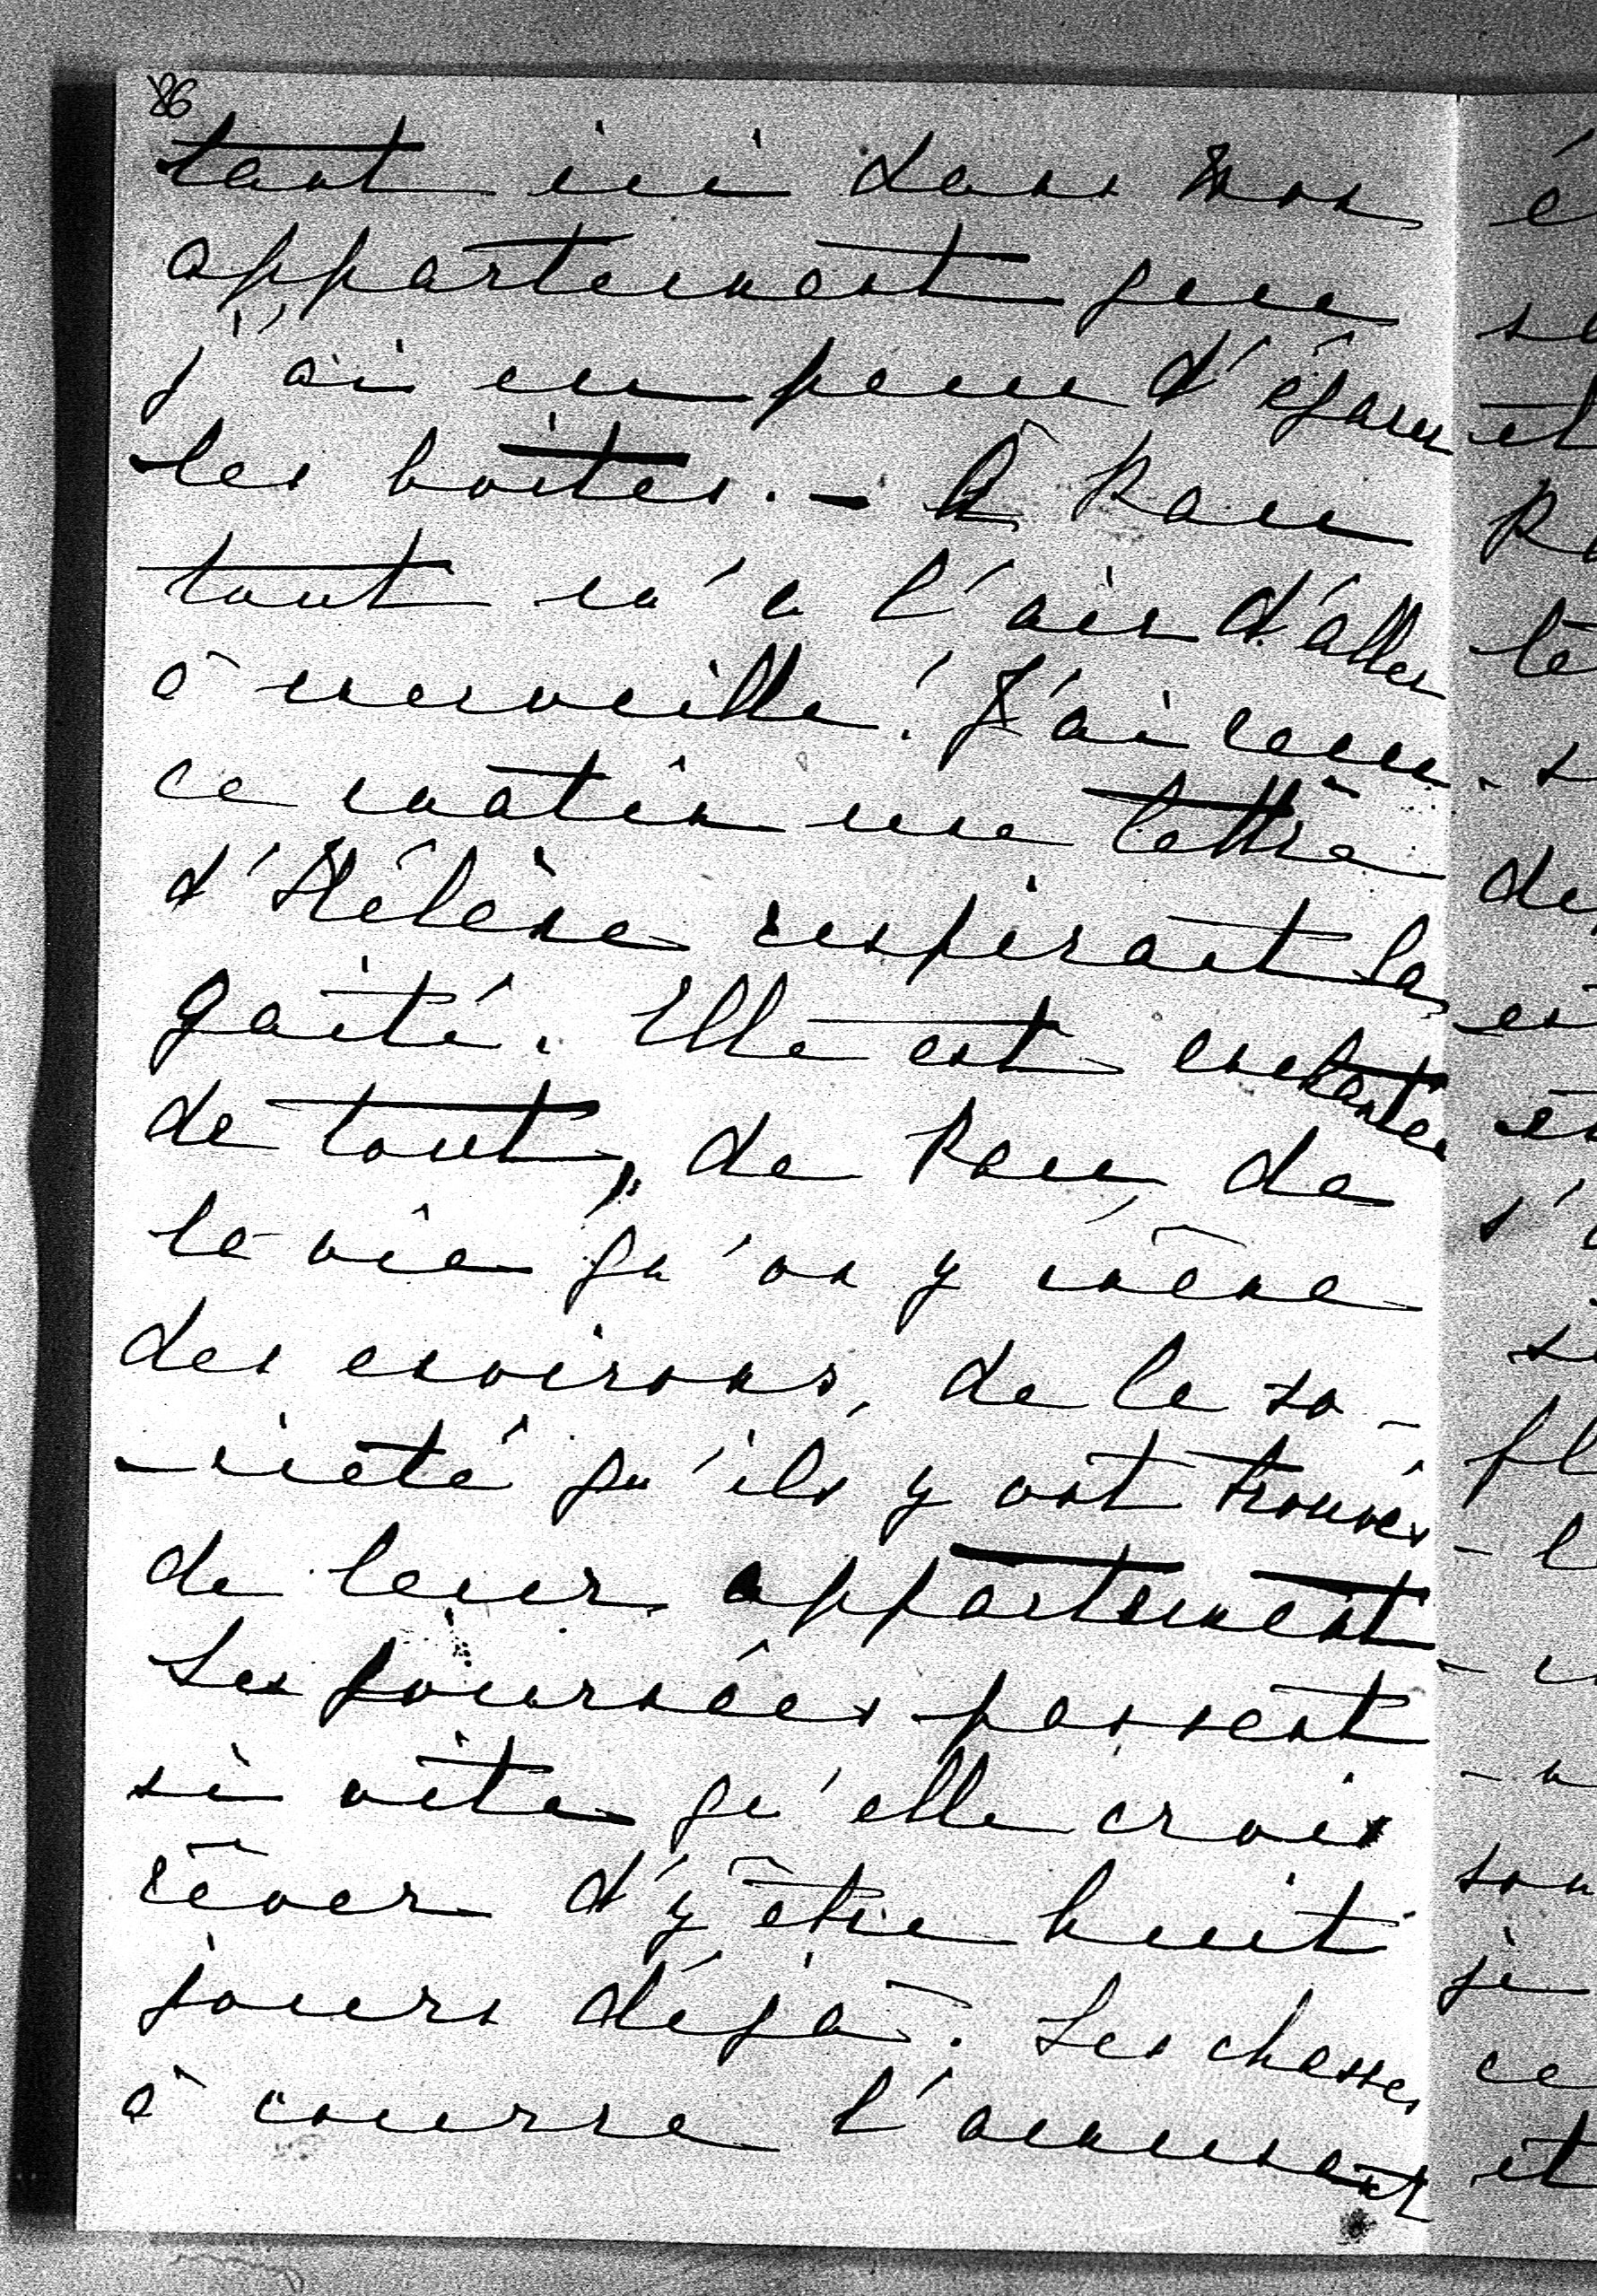 86
tant ici dans mon
appartement que
j'ai eu peur d'égarer
les boîtes. — A Pau
tout ça a l'air d'aller
à merveille! J'ai reçu
ce matin une lettre
d'Hélène respirant la
gaîté. Elle est enchantée
de tout, de Pau, de
la vie qu'on y mène
des environs, de la so-
-ciété qu'ils y ont trouvés
de leur appartement
Les journées passent
si vite qu'elle croit
rêver d'y être huit
jours déjà. Les chasses
à courre l'amusent